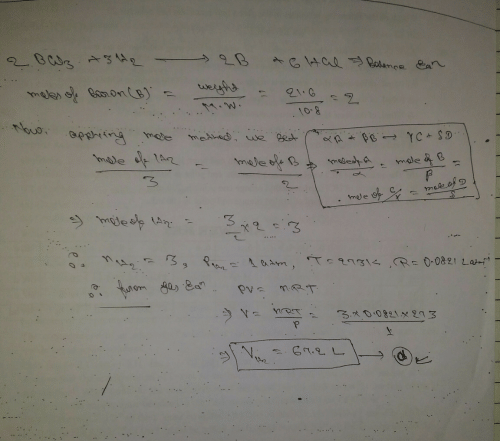 2 BCl3 + 3H2 ⟶ 2B + 6HCl ⇒ Balance Eqn
moles of Boron(B) = weight / M.W. = 21.6 / 10.8 = 2
Now, applying mole method we get
αA + βB → γC + δD
mole of H2 / 3 = mole of B / 2
⇒ mole of A / α = mole of B / β =
mole of C / γ = mole of D / δ
⇒ mole of H2 = 3/2 × 2 = 3
∴ nH2 = 3, PH2 = 1 atm, T = 273K, R = 0.0821 L atm
∴ from gas Eqn PV = nRT
⇒ V = nRT / P = 3 × 0.0821 × 273 / 1
⇒ VH2 = 67.2 L → a